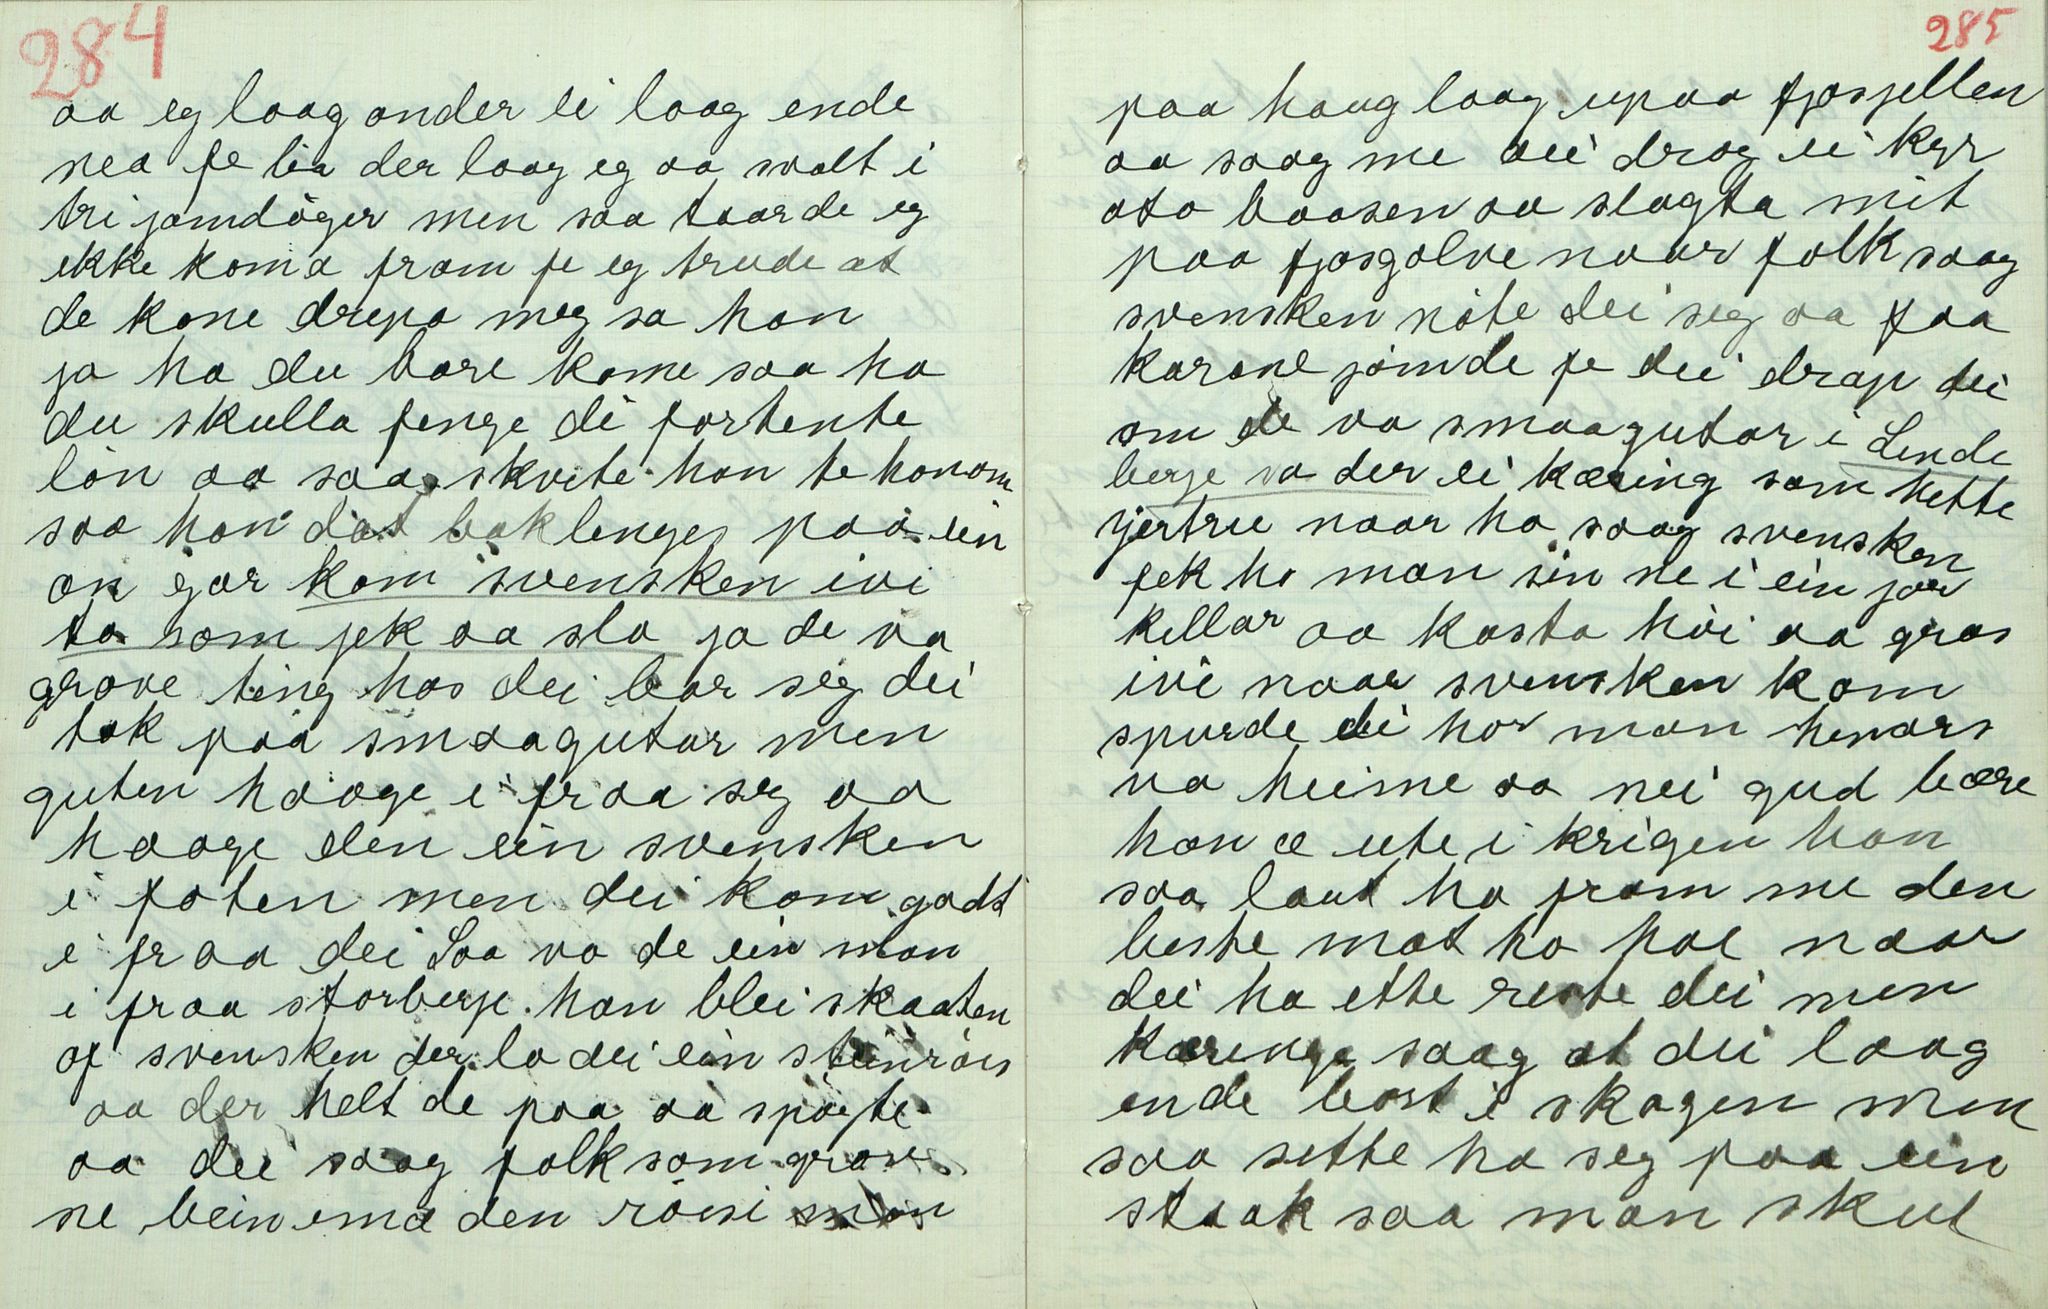 284
aa eg laag onder ei laag ende
nea fe lia der laag eg aa svalt i
tri jamdöger men saa taarde eg
ikke koma fram fe eg trude at
de kone drepa meg sa han
ja ha du bare kome saa ha
du skulla fenge di fortente
lön aa saa skvete han te honom
saa han dat baklenges paa ein
an gar kom svensken ivi
ta som jek aa sla ja de va
grove ting hos dei bar seg dei
tok paa smaagutar men
guten haage i fraa seg aa
haage den ein svensken
i foten men dei kom godt
i fraa dei Saa va de ein man
i fraa storberje han blei skaaten
af svensken der la dei ein steinröis
aa der helt de paa aa spögte
aa dei saag folk som grov
ne bein ma den röisi man
285
paa haug laag upaa fjosjellen
aa saag me dei drog ei kyr
ato baasen aa slagta mit
paa fjosgolve naar folk saag
svensken nöte dei seg aa faa
karane jömde fe dei drap dei
om de va smaagutar i Linde
berje va der ei kæring som hette
jertru naar ho saag svensken
fek ho man sin ne i ein jor
kellar aa kasta höi aa gras
ivi naar svensken kom
spurde dei hor man henars
va heime aa nei gud bære
han æ ute i krigen han
saa laut ho fram me den
beste mat ho hae naar
dei ha ette reiste dei men
kæringe saag at dei laag
ende bort i skogen men
saa sette ho seg paa ein
staak saa man skul